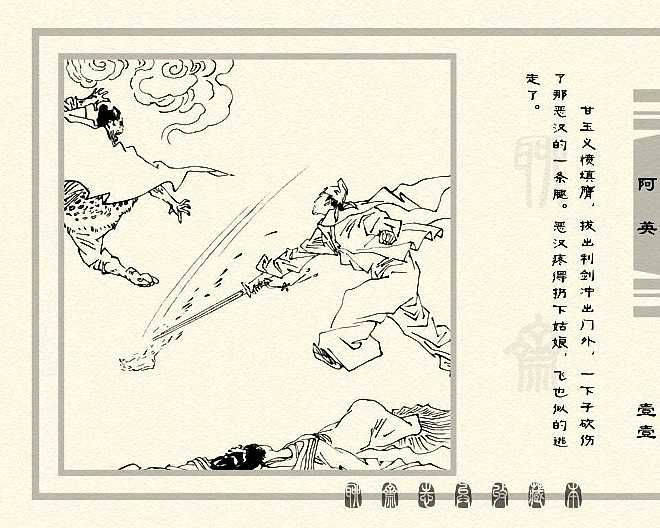 阿英
壹壹
甘玉义愤填膺，拔出利剑冲出门外，一下子砍伤
了那恶汉的一条腿。恶汉疼得扔下姑娘，飞也似的逃
走了。